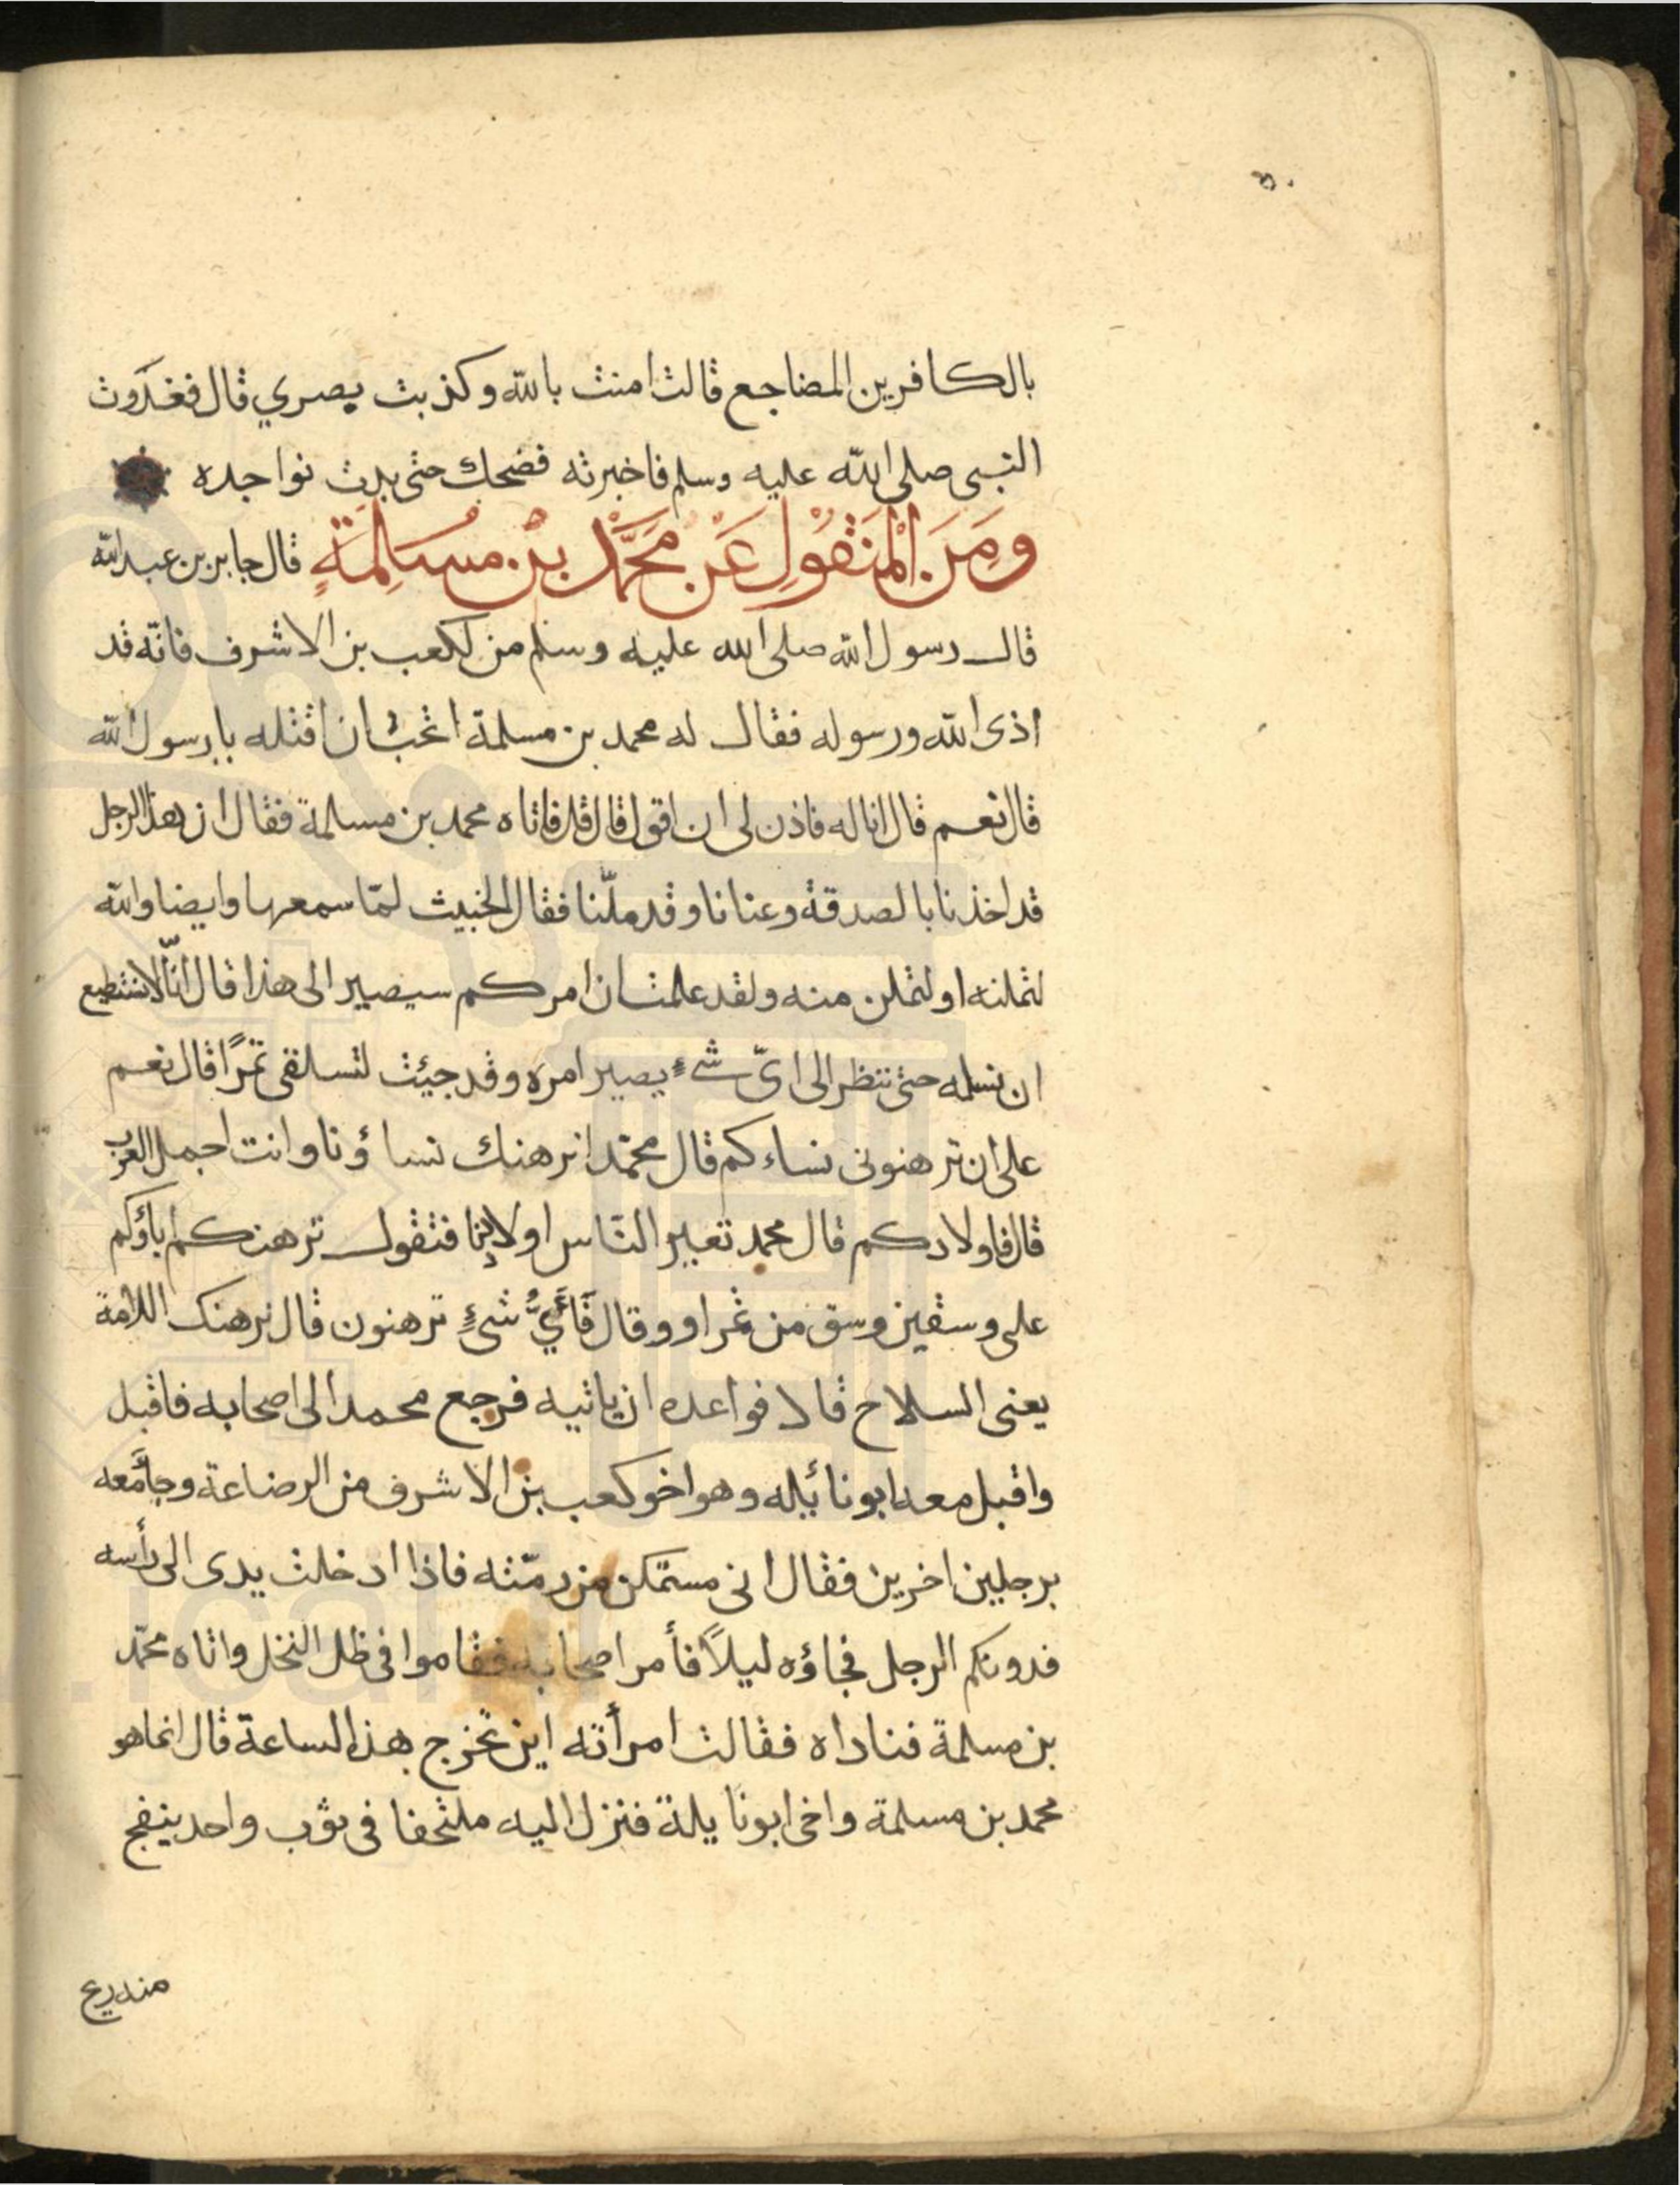 بالكافرين المضاجع قالت امنت بالله وكذبت بصري قال فغدوت
النبى صلى الله عليه وسلم فاخبرته فضحك حتى بدت نواجده
ومن المنقول عن محمد بن مسلمة قال جابر بن عبد الله
قال رسول الله صلى الله عليه وسلم من لكعب بن الاشرف فانه قد
اذى الله ورسوله فقال له محمد بن مسلمة اتحب ان اقتله يا رسول الله
قال نعم قال اناله فاذن لى ان اقول قال قل فاتاه محمد بن مسلمة فقال ان هذا الرجل
قد اخذنا بالصدقة وعنانا وقد ملّنا فقال الخبيث لمّا سمعها وايضا والله
لتملنه او لتملن منه ولقد علمت ان امركم سيصير الى هذا قال انّا لا نستطيع
ان نسلمه حتى ننظر الى اىّ شىء يصير امره وقد جيئت لتسلفى تمرًا قال نعم
على ان ترهنونى نساءكم قال محمّد انرهنك نساؤنا وانت اجمل العرب
قال فاولادكم قال محمد تعيير النّاس اولادنا فتقول ترهنكم اباؤكم
على وسقين وسق من تمر او وقال فَأَيُّ شىءٍ ترهنون قال نرهنك اللامة
يعنى السلاح قالا فواعده ان ياتيه فرجع محمد الى اصحابه فاقبل
واقبل معه ابونائيله وهو اخو كعب بن الاشرف من الرضاعة وجاء معه
برجلين اخرين فقال انى مستمكن من رمّته فاذا ادخلت يدى الى رأسه
فدونكم الرجل فجاؤه ليلاً فأمر اصحابه فقاموا فى ظل النخل واتاه محمّد
بن مسلمة فناداه فقالت امرأته اين تخرج هذا لساعة قال انما هو
محمد بن مسلمة واخى ابونايلة فنزل اليه ملتحفا فى ثوب واحد ينفح
منه ريح